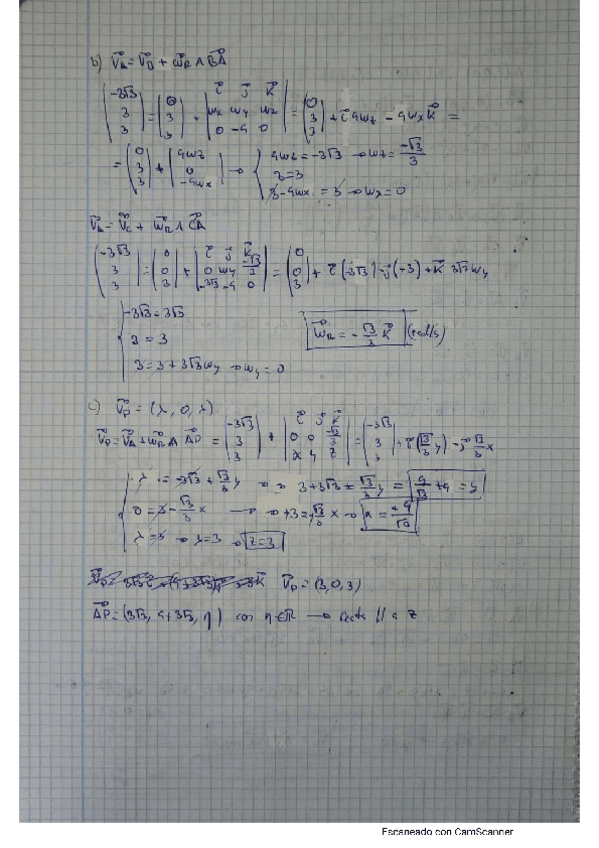 b) v⃗A = v⃗B + ω⃗R ∧ BA⃗
(-3√3, 3, 3) = (0, 3, 3) + |i⃗ j⃗ k⃗; ωx ωy ωz; 0 -9 0| = (0, 3, 3) + i⃗ 9ωz - 9ωx k⃗ =
= (0, 3, 3) + (9ωz, 0, -9ωx) → { 9ωz = -3√3 → ωz = -√3/3
3 = 3
3 - 9ωx = 3 → ωx = 0
v⃗A = v⃗C + ω⃗R ∧ CA⃗
(-3√3, 3, 3) = (0, 0, 3) + |i⃗ j⃗ k⃗; 0 ωy -√3/3; -3√3 -9 0| = (0, 0, 3) + i⃗(-3√3) - j⃗(-3) + k⃗ 3√3 ωy
{ -3√3 = 3√3
3 = 3
ω⃗R = -√3/3 k⃗ (rad/s)
3 = 3 + 3√3 ωy → ωy = 0
c) v⃗P = (λ, 0, λ)
v⃗P = v⃗A + ω⃗R ∧ AP⃗ = (-3√3, 3, 3) + |i⃗ j⃗ k⃗; 0 0 √3/3; x y z| = (-3√3, 3, 3) + i⃗(√3/3 y) - j⃗ √3/3 x
{ λ = -3√3 + √3/3 y → 3 + 3√3 = √3/3 y = 9/√3 + 9 = y
0 = 3 - √3/3 x → +3 = √3/3 x → x = +9/√3
λ = 3 → λ = 3 → z = 3
v⃗P = (3, 0, 3)
AP⃗ = (3√3, 9+3√3, η) con η∈ℝ → recta // a z
Escaneado con CamScanner